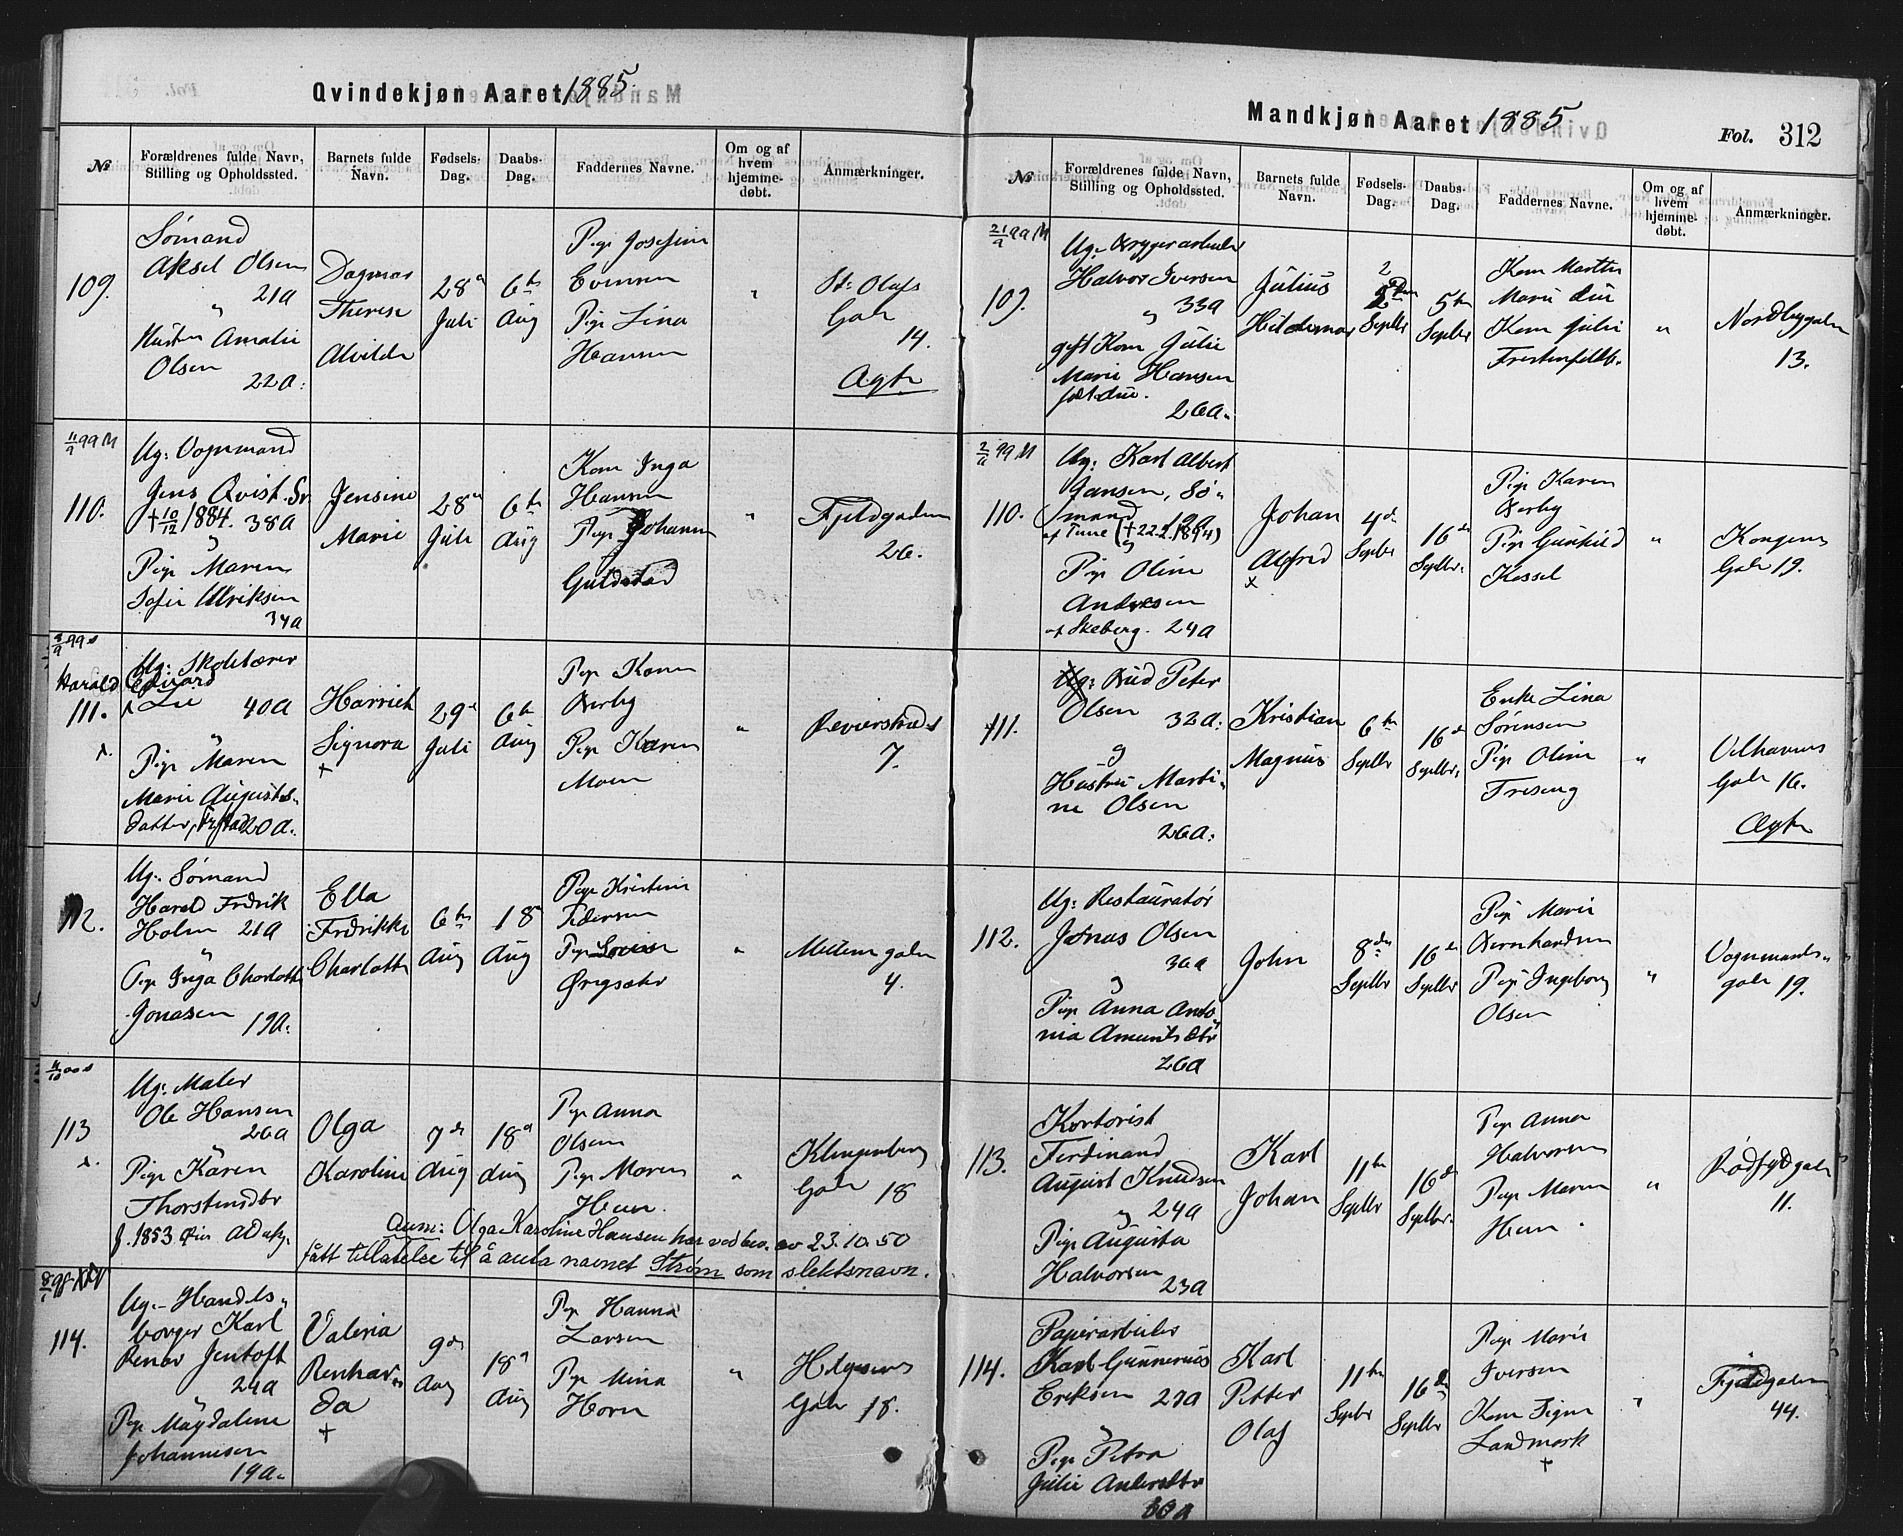 Qvindekjøn Aaret 1885.
№
Forældrenes fulde Navn,
Stilling og Opholdssted.
Barnets fulde
Navn.
Fødsels-
Dag.
Daabs-
Dag.
Faddernes Navne.
Om og af
hvem
hjemme-
døbt.
Anmærkninger.
109.
Sømand
Aksel Olsen
21 a
Hustru Amalie
Olsen
22 a.
Dagmar
Therese
Alvilde
28
Juli
6te
Aug
Pige Josefine
Evensen
Pige Lina
Hansen
"
St: Olafs
Gade
14.
Ægte
110.
Ug: Vognmand
Jens Qvist Sr.
† 10/12 1884. 38 a
Pige Maren
Sofie Ulriksen
34 a
Jensine
Marie
28
Juli
6te
Aug
Kone Inga
Hansen
Pige Johanne
Guldstad
"
Fjeldgaden
26.
Harald Edvard
111.
Ug: Skolelærer
Lie 40 a
Pige Maren
Marie Augusts-
datter, 20 a.
Harriet
Signora
+
29
Juli
6te
Aug
Pige Karen
Berby
Pige Karen
Moen
"
Revierstrædet
7.
112.
Ug: Sømand
Harald Fredrik
Holm 21 a
Pige Inga Charlotte
Jonasen
19 a.
Ella
Fredrikke
Charlotte
6te
Aug
18
Aug
Pige Kristine
Pedersen
Pige Lovise
"
Mellemgaden
4.
113
Ug: Maler
Ole Hansen
26 a
Pige Karen
Thorstensdtr
f. 1853
Olga
Karoline
7de
Aug
18
Aug
Pige Anna
Olsen
Pige Maren
Heen.
"
Klingenberg
Gade 18
Anm: Olga Karoline Hansen har ved bev. av 23.10.50
fått tillatelse til å anta navnet Strøm som slektsnavn.
114.
Ug: Handels-
borger Karl
Renar Jentoft
24 a
Pige Magdalene
Johannesen
19 a.
Valeria
Renhar-
da
+
9de
Aug
18
Aug
Pige Hanna
Larsen
Pige Mina
Horn
"
Helgesens
Gade 18.
Mandkjøn Aaret 1885
Fol. 312
№
Forældrenes fulde Navn,
Stilling og Opholdssted.
Barnets fulde
Navn.
Fødsels-
Dag.
Daabs-
Dag.
Faddernes Navne.
Om og af
hvem
hjemme-
døbt.
Anmærkninger.
109.
Ug: Bryggerarbeider
Halvor Iversen
33 a
gift Kone Julie
Marie Hansen
26 a.
Julius
Hildemar
2
Septbr
5te
Septbr
Kone Marthe
Marie Due
Kone Julie
"
Nordbygaden
13.
110.
Ug: Karl Albert
Jansen, Sø-
mand 19 a
af Tune († 22.2.1894)
Pige Oline
Andresen
af Skeberg. 24 a
Johan
Alfred
x
4de
Septbr
16de
Septbr.
Pige Karen
Berby
Pige Gunhild
Kessel
"
Kongens
Gade 19.
111.
Bud Peter
Olsen 32 a.
Hustru Marti-
ne Olsen
26 a.
Kristian
Magnus
6te
Septbr
16de
Septbr.
Enke Lina
Sørensen
Pige Oline
Freseng
"
Velhavens
Gade 16.
Ægte
112.
Ug: Restauratør
Jonas Olsen
36 a
Pige Anna Anto
nia Amundsdtr
26 a
John
8de
Septbr
16de
Septbr
Pige Marie
Bernhardsen
Pige Ingeborg
Olsen
"
Vognmands-
gade 19.
113.
Kontorist
Ferdinand
August Knudsen
24 a
Pige Augusta
Halvorsen
23 a
Karl
Johan
11te
Septbr
16de
Septbr.
Pige Anna
Halvorsen
Pige Maren
Heen.
"
Rødfyldgaden
11.
114.
Papirarbeider
Karl Gunnerius
Eriksen 27 a
Pige Petra
Julie Andersdtr
Karl
Petter
Olaf
11te
Septbr
16de
Septbr
Pige Marie
Iversen
Kone Signe
Landmark
+
"
Fjeldgaden
44.